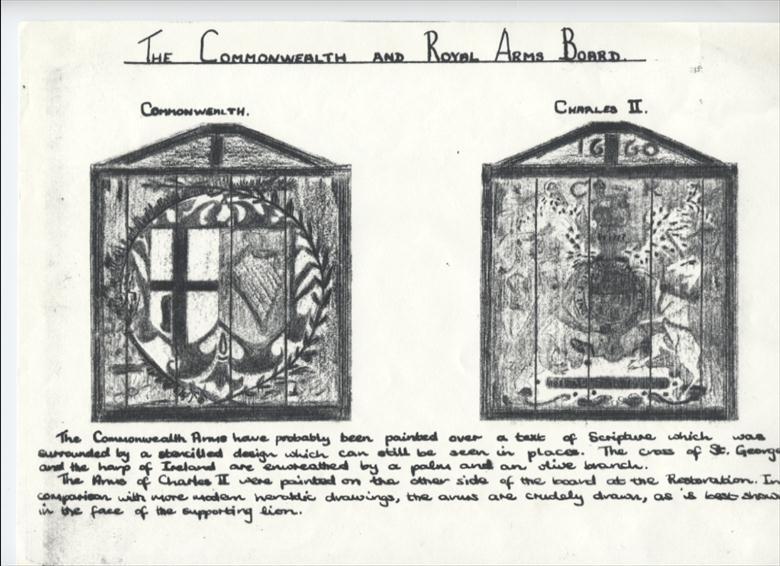 THE COMMONWEALTH AND ROYAL ARMS BOARD.
COMMONWEALTH.
CHARLES II.
1660
C R
The Commonwealth Arms have probably been painted over a text of Scripture which was
surrounded by a stencilled design which can still be seen in places. The cross of St. George
and the harp of Ireland are enwreathed by a palm and an olive branch.
The Arms of Charles II were painted on the other side of the board at the Restoration. In
comparison with more modern heraldic drawings, the arms are crudely drawn, as is best shown
in the face of the supporting lion.